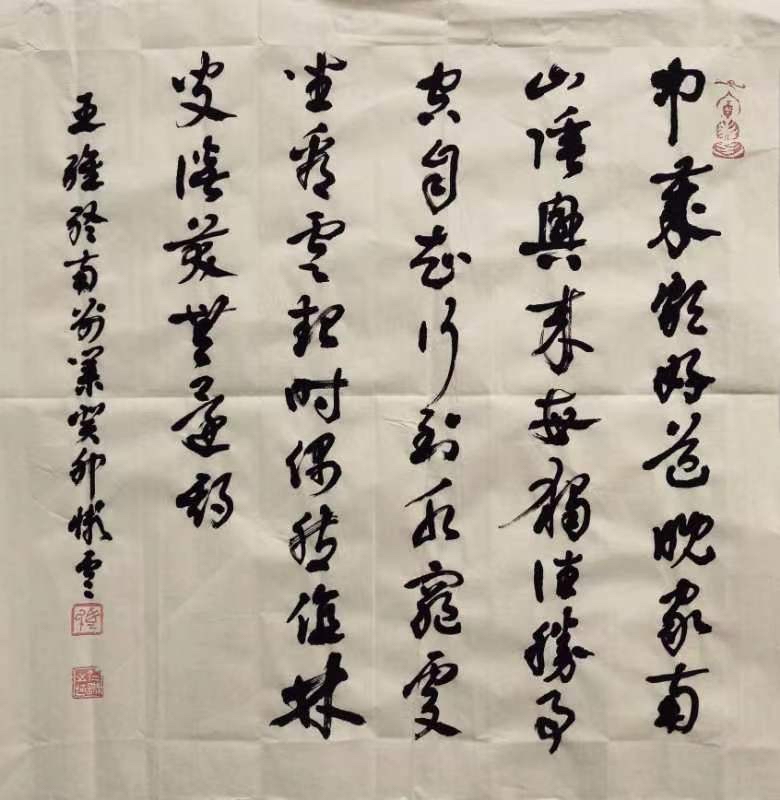 中歲頗好道晚家南
山陲興來每獨往勝事
空自知行到水窮處
坐看雲起时偶然值林
叟談笑無還期
王維終南別業癸卯雲